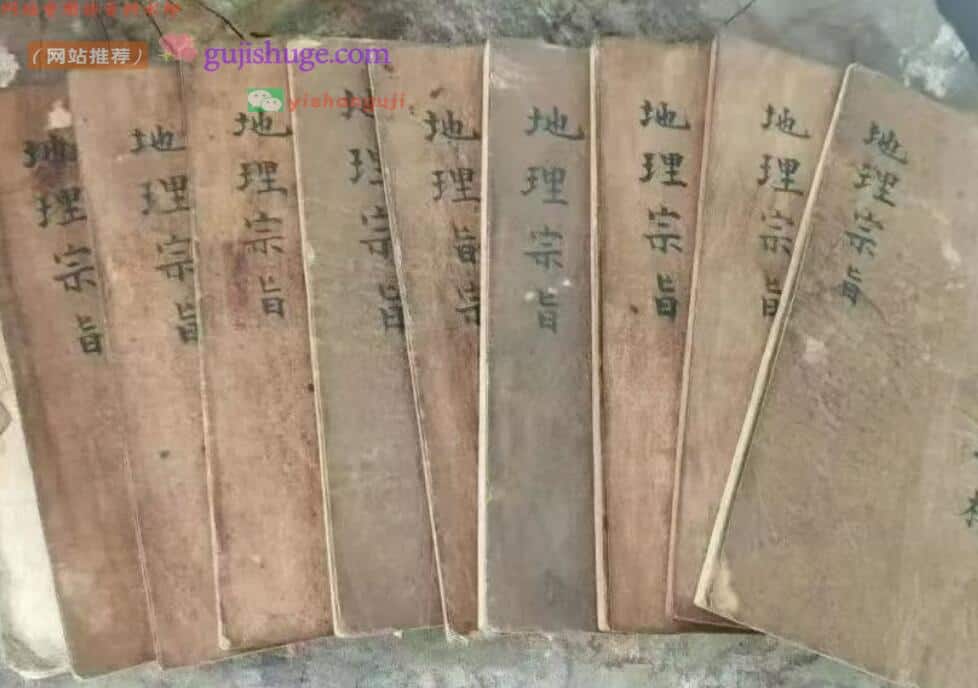 （网站推荐） gujishuge.com
yishanguji
地理宗旨
地理宗旨
地理宗旨
地理宗旨
地理旨宗
地理宗旨
地理宗旨
地理宗旨
地理宗旨